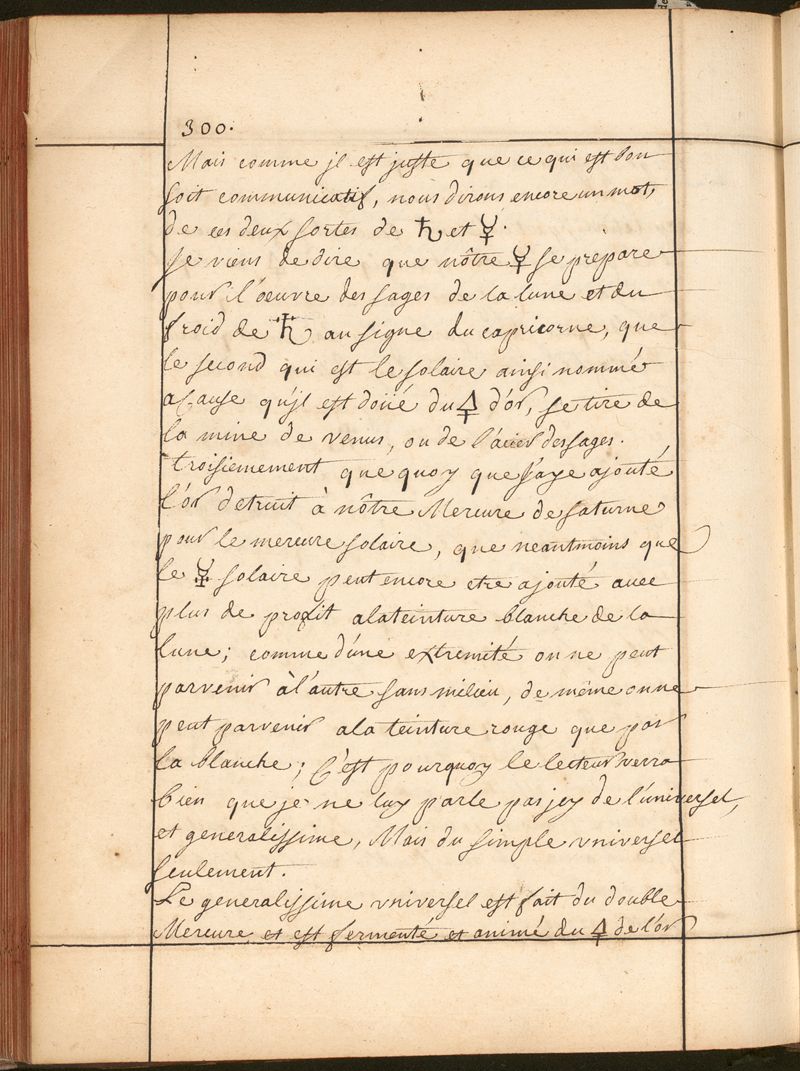 300.
Mais comme jl est juste que ce qui est bon
soit communicatif, nous dirons encore un mot,
de ces deux sortes de ♄ et ☿.
Je viens de dire que nôtre ☿ se prepare
pour l'oeuvre des sages de la lune et du
froid de ♄ au signe du capricorne, que
le second qui est le solaire ainsi nommé
a Cause qu'jl est doüé du 🜍 d'or, se tire de
la mine de venus, ou de l'acier des sages.
troisiemement que quoy que j'aye ajouté
l'or detruit à nôtre Mercure de saturne
pour le mercure solaire, que neantmoins que
le ☿ solaire peut encore etre ajouté avec
plus de profit a la teinture blanche de la
lune; comme d'une extremité on ne peut
parvenir à l'autre sans milieu, de même on ne
peut parvenir a la teinture rouge que par
la blanche; C'est pourquoy le lecteur verra
bien que je ne luy parle pas jcy de l'universel,
et generalissime, Mais du simple vniversel
seulement.
Le generalissime vniversel est fait du double
Mercure et est fermenté et animé du 🜍 de l'or